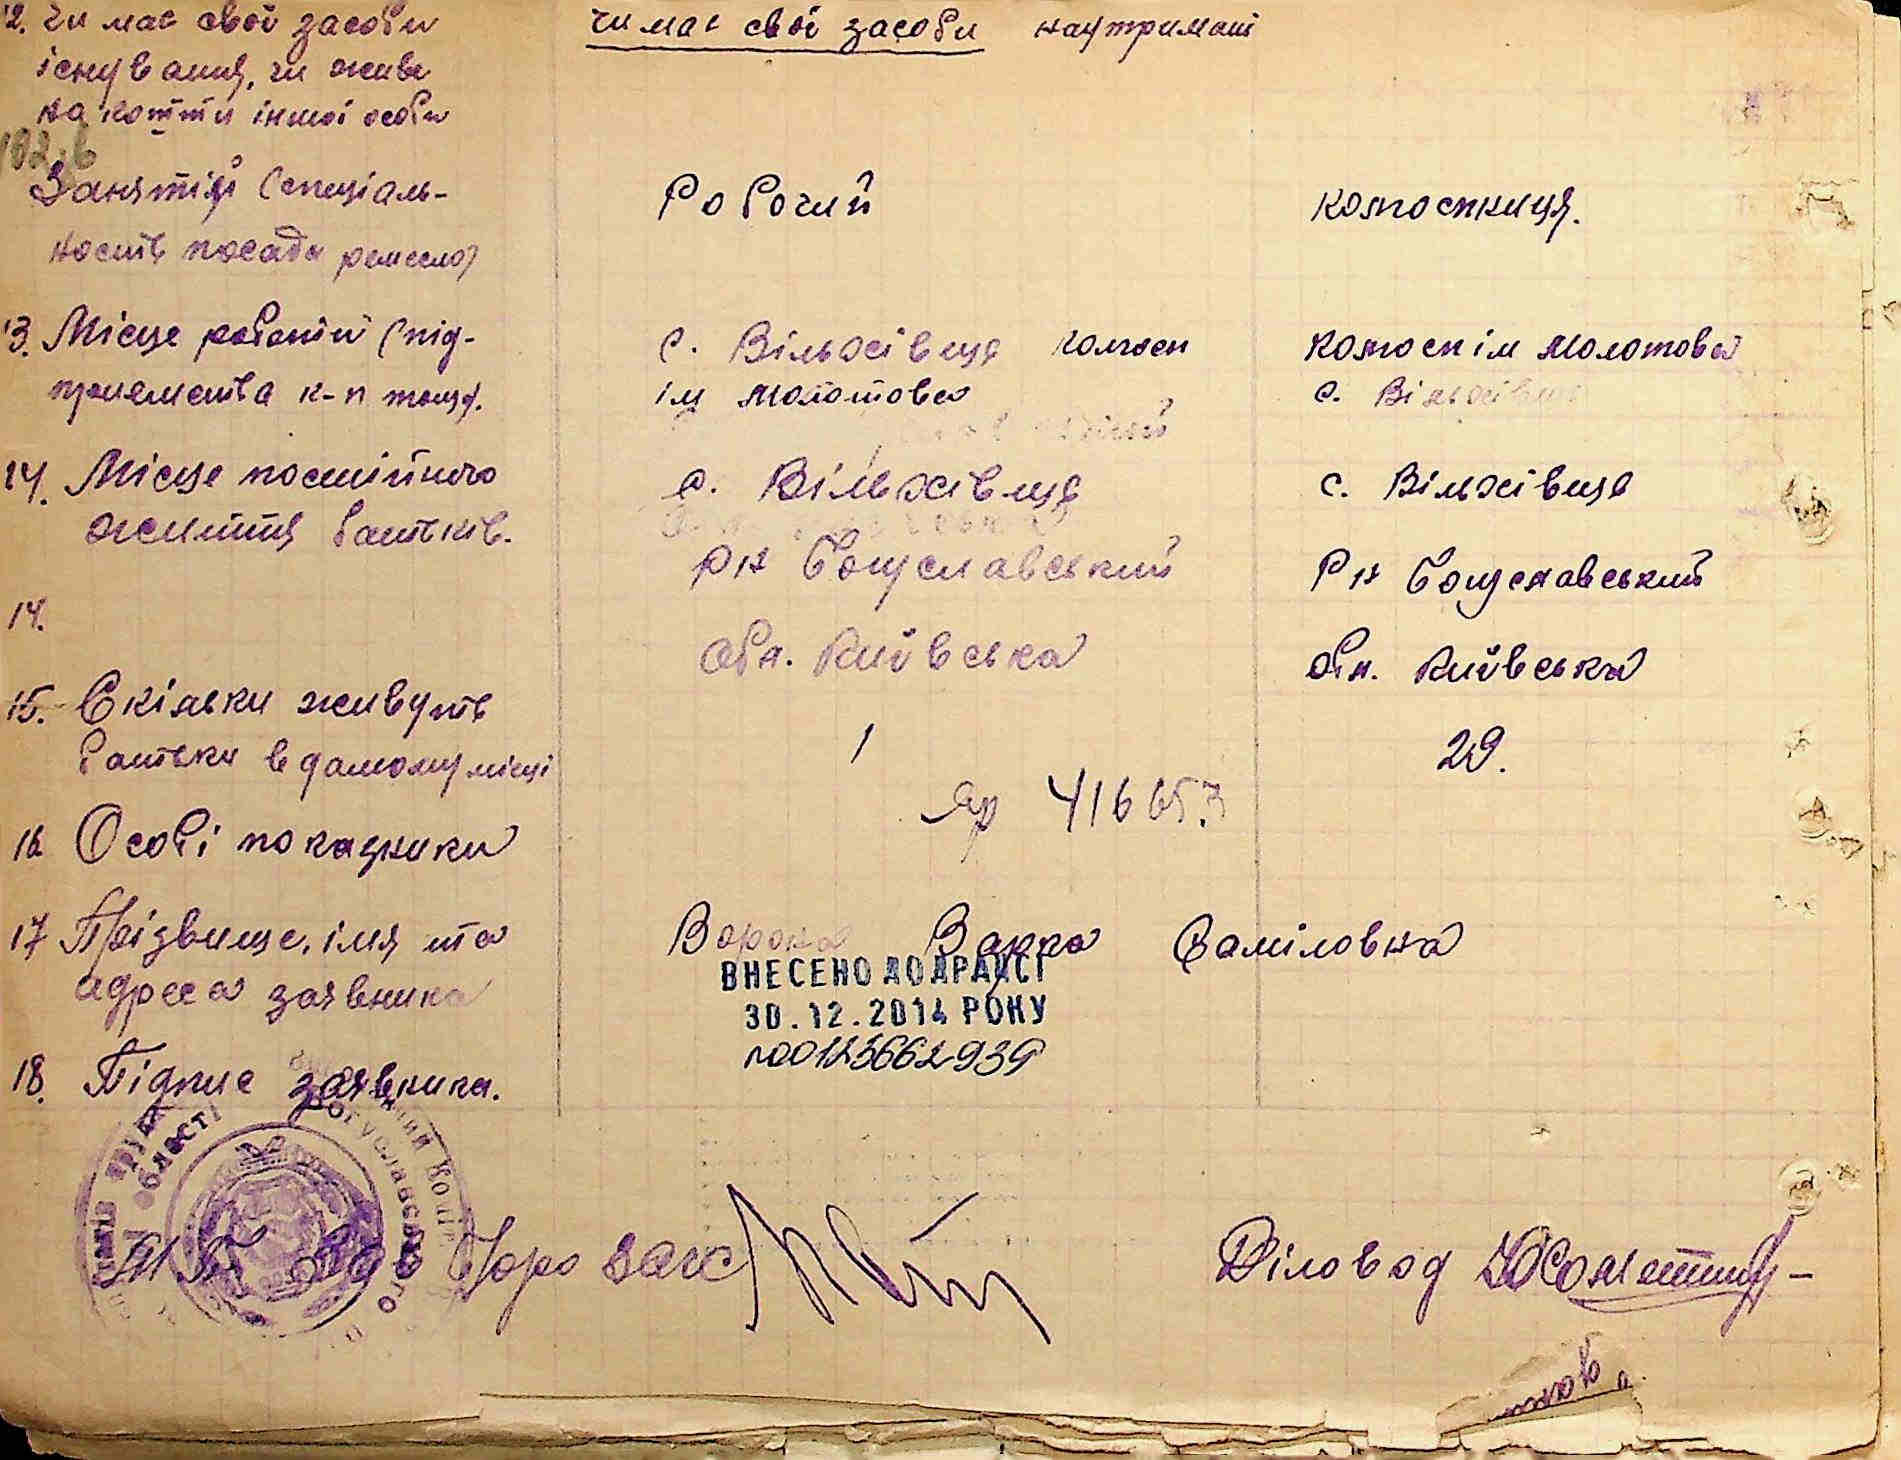 12. Чи має свої засоби
існування, чи живе
на кошти іншої особи
чи має свої засоби на утримані
Заняття (спеціаль-
ность посада ремесло)
Робочий
колгоспниця.
13. Місце роботи (під-
приємства к-п тощо).
с. Вільхівця колгосп
ім Молотова
колгосп ім Молотова
с. Вільхівця
14. Місце постійного
життя батьків.
с. Вільхівця
рн Богуславський
обл. Київська
с. Вільхівця
рн Богуславський
обл. Київська
14.
15. Скільки живуть
батьки в даному місці
1
29.
яр 416657
16 Особі показники
17 Прізвище, імя та
адреса заявника
Ворона Варка Даміловна
ВНЕСЕНО ДО ДРАЦСГ
30.12.2014 РОКУ
№00125662939
18. Підпис заявника.
області
Богуславського
М П Зав бюро загс
Діловод